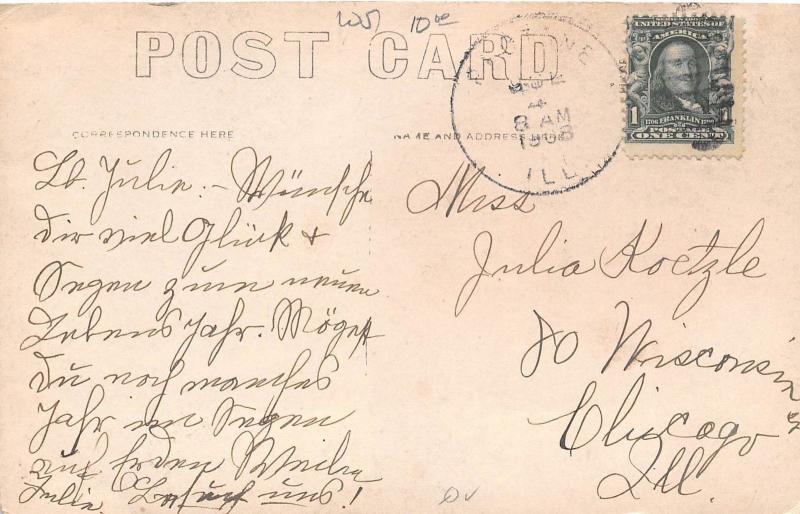 W51 10.00
POST CARD
CORRESPONDENCE HERE
NAME AND ADDRESS HERE
JUL
4
8 AM
1908
ILL.
SERIES 1902
UNITED STATES OF
AMERICA
1706 FRANKLIN 1790
POSTAGE
1 ONE CENT 1
Lb. Julie :- Wünsche
dir viel Glück +
Segen zum neuen
LebensJahr. Mögest
Du noch manches
Jahr im Segen
auf Erden Weilen
Julie. Besuch uns!
Miss
Julia Koetzle
80 Wisconsin St
Chicago
Ill.